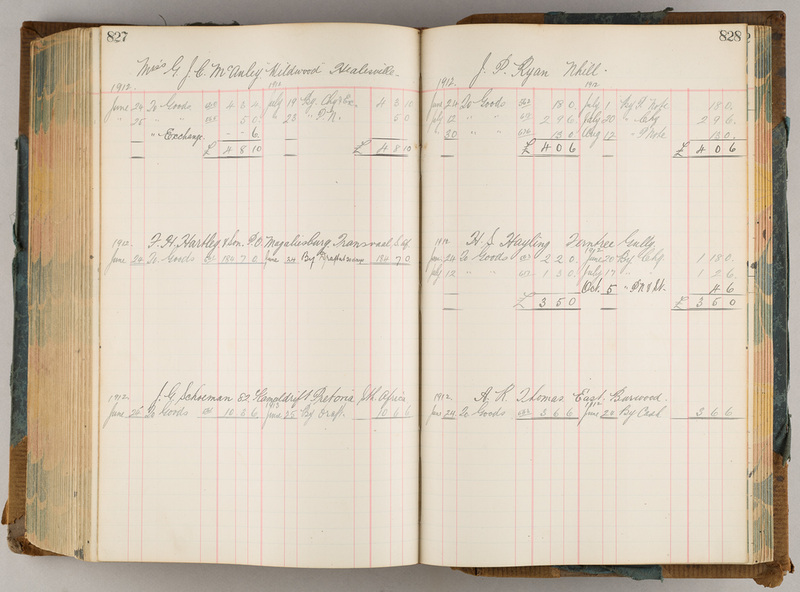 827
Mrs G. J. C. McAnley "Wildwood" Healesville.
1912. 1912
June 24 To Goods 4 3 4 July 19 By Chq & Ex. 4 3 10
" 25 " " 5 0 23 " P.N. 5 0
" Exchange - - 6
£ 4 8 10 £ 4 8 10
1912. F. H. Hartley & Son. P.O. Magaliesburg. Transvaal S. Af.
June 24 To Goods 184 7 0 June 24 By 184 7 0
1912. J. G. Schoeman Pretoria Sth. Africa
June 25 To Goods 10 6 6 June 25 By Draft. 10 6 6
828
J. P. Ryan Nhill.
1912. 1912
June 24 To Goods 18 0. July 1 By P. Note 18 0.
July 12 " " 2 9 6 July 20 " Chq 2 9 6.
30 " " 13 0 Aug 12 " P Note 13 0.
£ 4 0 6 £ 4 0 6
1912 H. S. Hayling Ferntree Gully.
June 24 To Goods 2 2 0. June 20 By Chq. 1 18 0.
July 12 " " 1 3 0. July 17 " " 1 2 6.
Oct. 5 " P N & St. 4 6
£ 3 5 0 £ 3 5 0
1912. A. K. Thomas East Burwood.
June 24 To Goods 3 6 6 June 24 By Cash 3 6 6